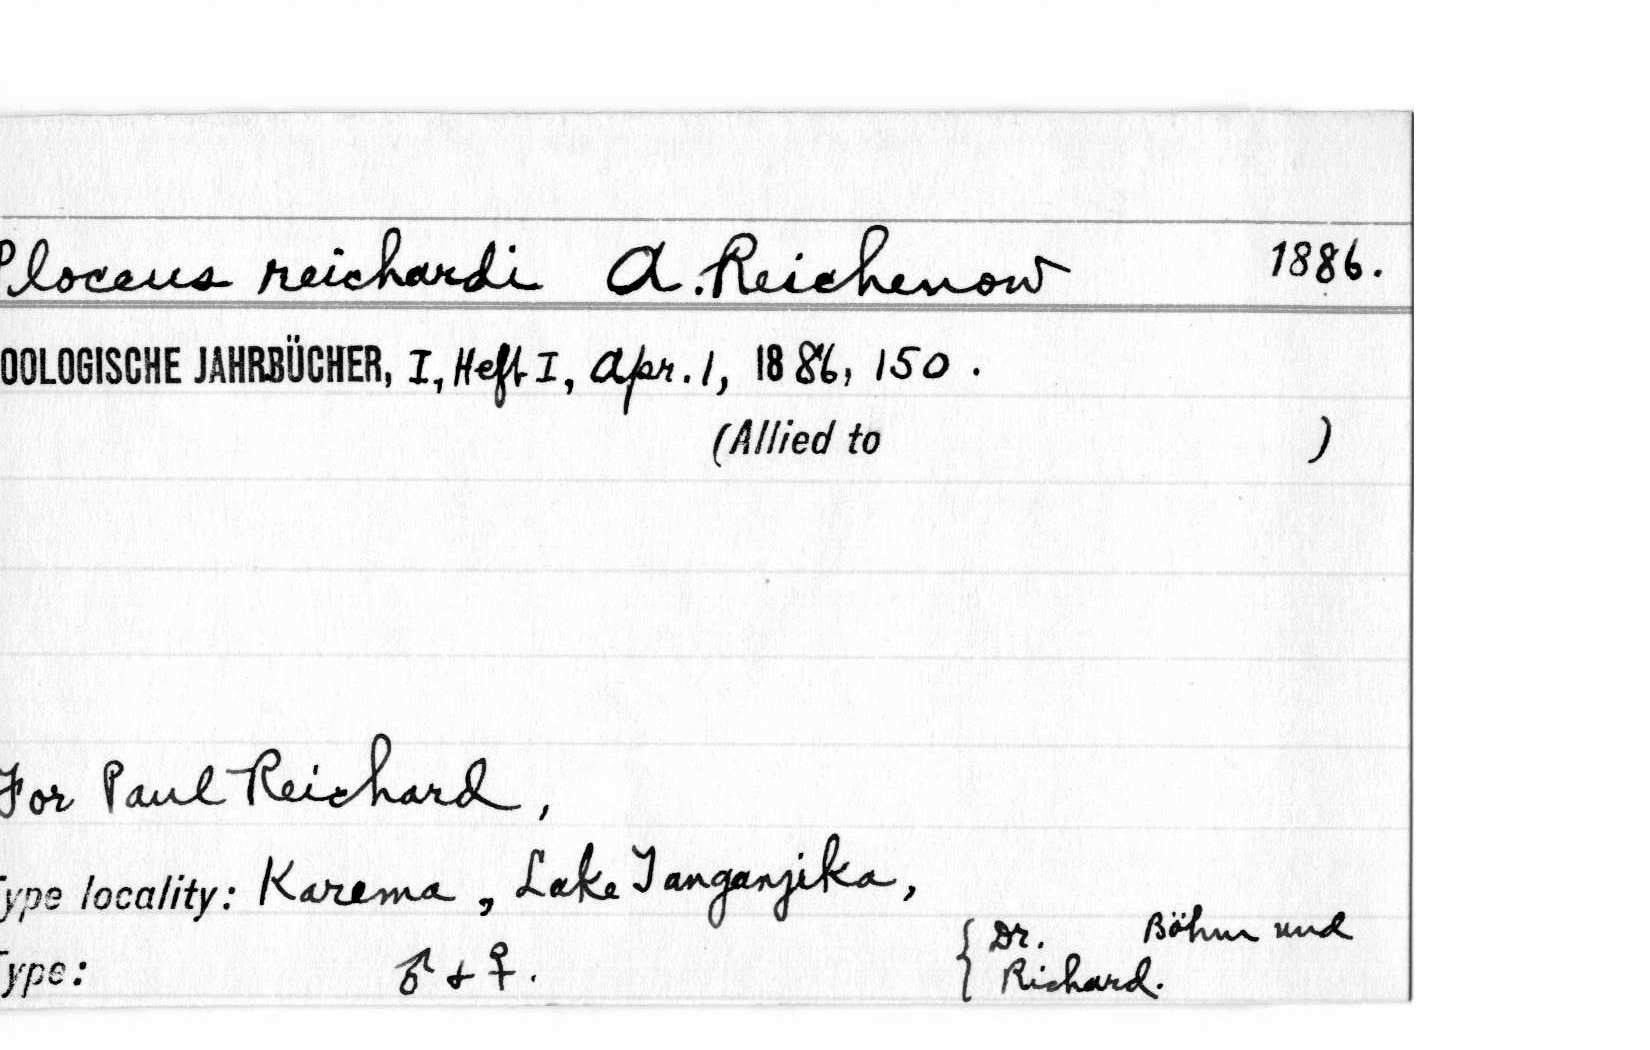 Ploceus reichardi A. Reichenow 1886.
OOLOGISCHE JAHRBÜCHER, I, Heft I, Apr. 1, 1886, 150.
(Allied to )
For Paul Reichard,
Type locality: Karema, Lake Tanganjika,
Type: ♂ + ♀. { Dr. Böhm und
Richard.